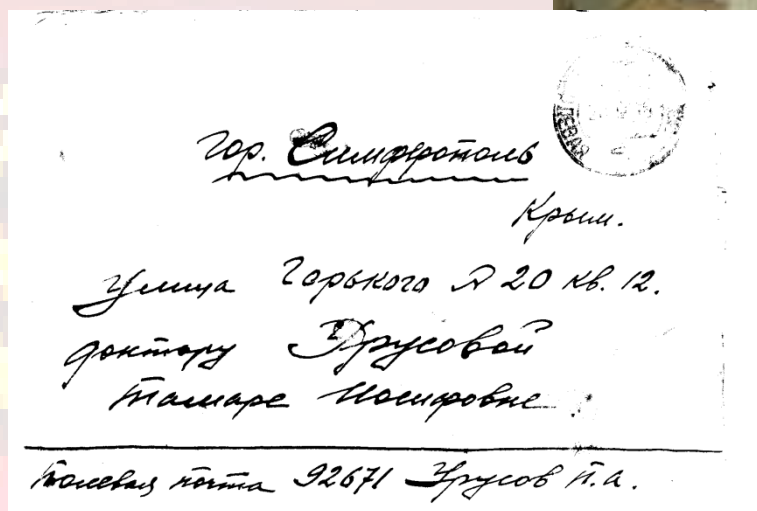 гор. Симферополь
Крым.
Улица Горького Д 20 кв. 12.
доктору Урусовой
Тамаре Иосифовне
Полевая почта 92671 Урусов П.А.